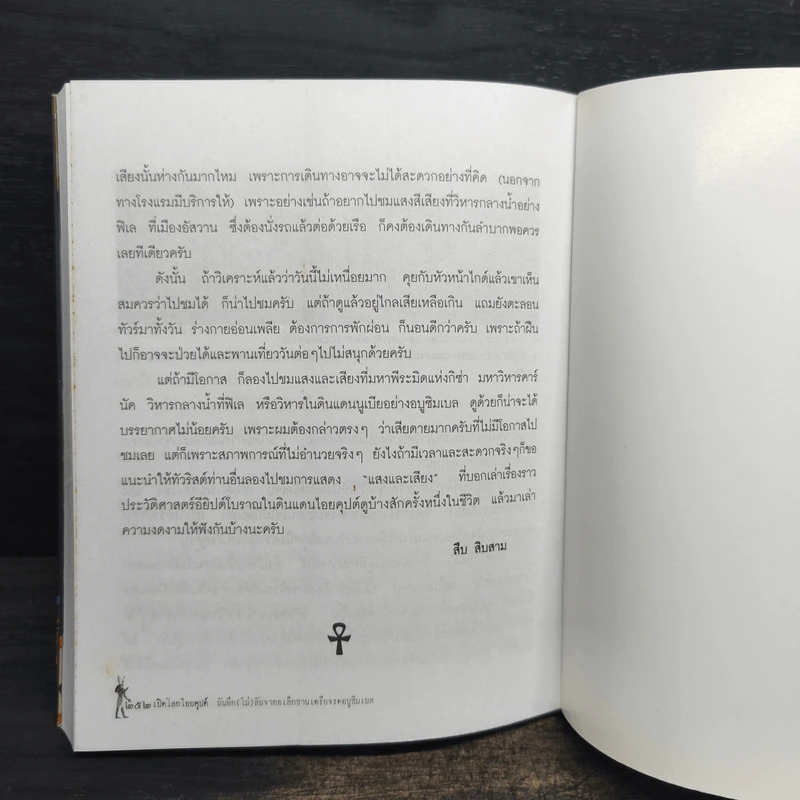 เสียงนั้นห่างกันมากไหม เพราะการเดินทางอาจจะไม่ได้สะดวกอย่างที่คิด (นอกจาก
ทางโรงแรมมีบริการให้) เพราะอย่างเช่นถ้าอยากไปชมแสงสีเสียงที่วิหารกลางน้ำอย่าง
ฟิเล ที่เมืองอัสวาน ซึ่งต้องนั่งรถแล้วต่อด้วยเรือ ก็คงต้องเดินทางกันลำบากพอควร
เลยทีเดียวครับ
ดังนั้น ถ้าวิเคราะห์แล้วว่าวันนี้ไม่เหนื่อยมาก คุยกับหัวหน้าไกด์แล้วเขาเห็น
สมควรว่าไปชมได้ ก็น่าไปชมครับ แต่ถ้าดูแล้วอยู่ไกลเสียเหลือเกิน แถมยังตะลอน
ทัวร์มาทั้งวัน ร่างกายอ่อนเพลีย ต้องการการพักผ่อน ก็นอนดีกว่าครับ เพราะถ้าฝืน
ไปก็อาจจะป่วยได้และพานเที่ยววันต่อๆไปไม่สนุกด้วยครับ
แต่ถ้ามีโอกาส ก็ลองไปชมแสงและเสียงที่มหาพีระมิดแห่งกิซ่า มหาวิหารคาร์
นัค วิหารกลางน้ำที่ฟิเล หรือวิหารในดินแดนนูเบียอย่างอบูซิมเบล ดูด้วยก็น่าจะได้
บรรยากาศไม่น้อยครับ เพราะผมต้องกล่าวตรงๆ ว่าเสียดายมากครับที่ไม่มีโอกาสไป
ชมเลย แต่ก็เพราะสภาพการณ์ที่ไม่อำนวยจริงๆ ยังไงถ้ามีเวลาและสะดวกจริงๆก็ขอ
แนะนำให้ทัวริสต์ท่านอื่นลองไปชมการแสดง "แสงและเสียง" ที่บอกเล่าเรื่องราว
ประวัติศาสตร์อียิปต์โบราณในดินแดนไอยคุปต์ดูบ้างสักครั้งหนึ่งในชีวิต แล้วมาเล่า
ความงดงามให้ฟังกันบ้างนะครับ
สืบ สิบสาม
๒๕๒ เปิดโลกไอยคุปต์ บันทึก(ไม่)ลับจากอเล็กซานเดรียจรดอบูซิมเบล